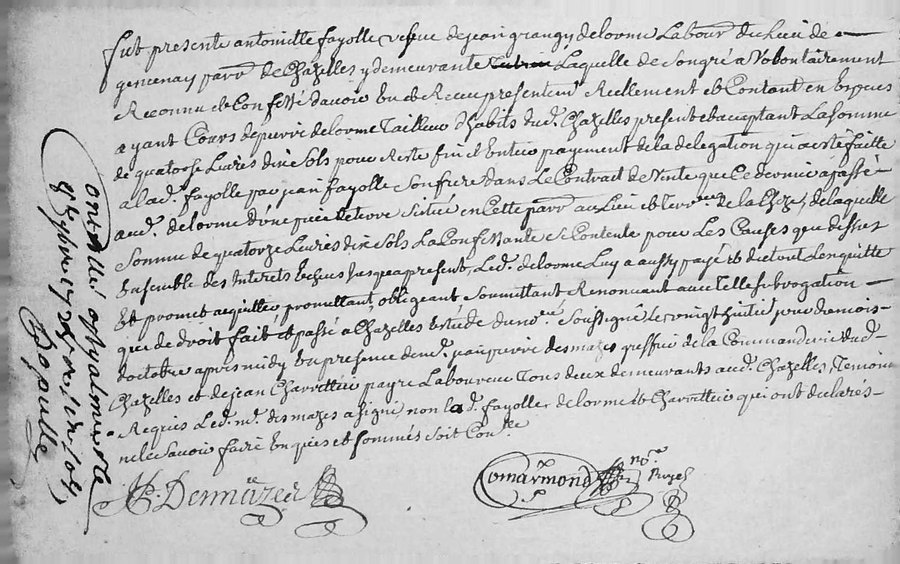 fut presente antoinette fayolle vesve de jean grangy delorme Labour du Lieu de
gencenay parr de Chazelles y demeurante Laquelle de Songré a Volontairement
Reconnu et Confessé davoir eu et Receu presentemt Reellement et Contant en Especes
ayant Cours de pierre delorme Tailleur d'habits dud. Chazelles present et acceptant La Somme
de quatorse Livres dix Sols pour Reste fin et Entier payement de la delegation qui a esté faitte
a lad. fayolle par jean fayolle Son frere dans Le Contrait de Vente que Ce dernier a passé
aud. delorme d'une piece de terre Situé en Cette parr au Lieu et Terroir de la , de laquelle
Somme de quatorze Livres dix Sols La Confessante Se Contente pour Les Causes que dessus
Ensemble des Interets Echeus Jusqua present, Led. delorme Luy a aussy payé et du tout Lenquitte
Et promet acquitter promettant, obligeant Soumittant Renoncant avec Telle Subrogation
que de droit fait et passé a Chazelles Estude du nore Soussigné Le vingt huitie jour du mois
d'octobre apres midy En presence de me jean pierre desmazes greffier de la Commanderie dud.
Chazelles et de jean Charrettier payre Laboureur Tous deux demeurants aud. Chazelles, Temoins
Requis Led. me desmazes a signé non lad. fayolle delorme et Charrettier qui ont declarés
ne le Savoir faire Enquis et Sommés Soit Conlle
Desmazes
Comarmond nore Royal